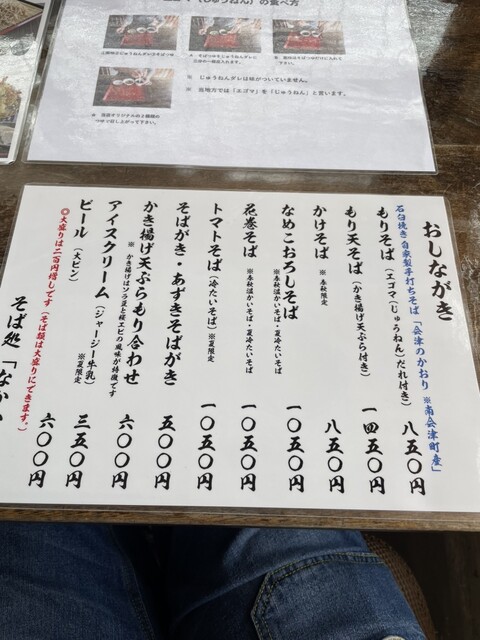 (じゅうねん)の食べ方
※ じゅうねんダレは味がついていません。
※ 当地方では「エゴマ」を「じゅうねん」と言います。
おしながき
石臼挽き自家製手打ちそば「会津のかおり ※南会津町産」
もりそば(エゴマ(じゅうねん)だれ付き) 八五〇円
もり天そば(かき揚げ天ぷら付き) 一四五〇円
かけそば ※春秋限定 八五〇円
なめこおろしそば ※春秋温かいそば・夏冷たいそば 一〇五〇円
花巻そば ※春秋温かいそば・夏冷たいそば 一〇五〇円
トマトそば(冷たいそば)※夏限定 一〇五〇円
そばがき・あずきそばがき 五〇〇円
かき揚げ天ぷらもり合わせ 六〇〇円
※ かき揚げはソラ豆と桜エビの風味が特徴です
アイスクリーム(ジャージー牛乳)※夏限定 三五〇円
ビール(大ビン) 六〇〇円
◎大盛りは二百円増しです(そば類は大盛りにできます。)
そば処「なか